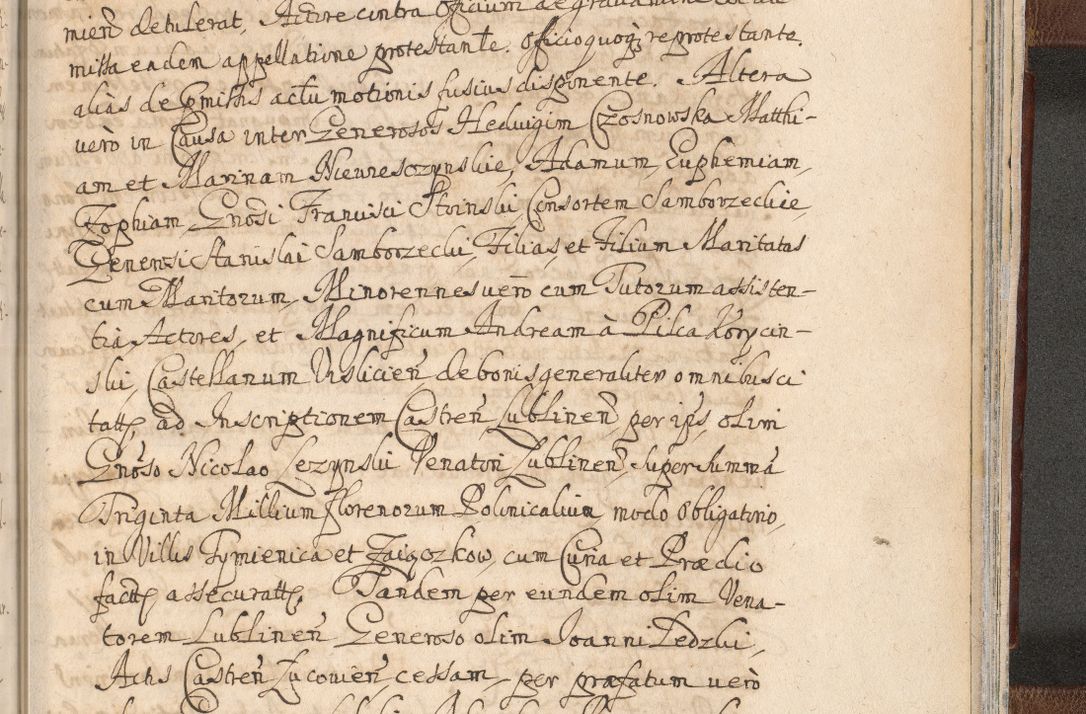 mień detulerat, Actore contra Officium de gravamine
missa eadem appellatione protestante, officio quoq; reprotestante,
alias de pmissis actu motionis fusius disponente. Altera
vero in Causa inter Generosos Hedvigim Czosnowska Matthi-
am et Marinam Niewiesczynskie, Adamum, Euphemiam,
Zophiam, Gnosi Francisci Stoinski, Consortem Samborzeckie,
Generosi Stanislai Samborzecki, Filias, et Filium Maritatas
cum Maritorum, Minorennes vero cum Tutorum assisten-
tia, Actores, et Magnificum Andream à Pilca Korycin-
ski, Castellanum Vislicień, de bonis generaliter omnibus ci
tatt, ad Inscriptionem Castreń Lublineń, per ips, olim
Gnoso Nicolao Lezynski Venatori Lublineń, super summa
Triginta Millium florenorum Polonicalium, modo Obligatorio,
in Villis Tymienica et Zaigczkow, cum Curia et Prædio
factt assecuratt, Tandem per eundem olim Vena-
torem Lublineń Generoso olim Joanni Ledzki,
Actis Castreń Lucovień, cessam, per præfatum vero